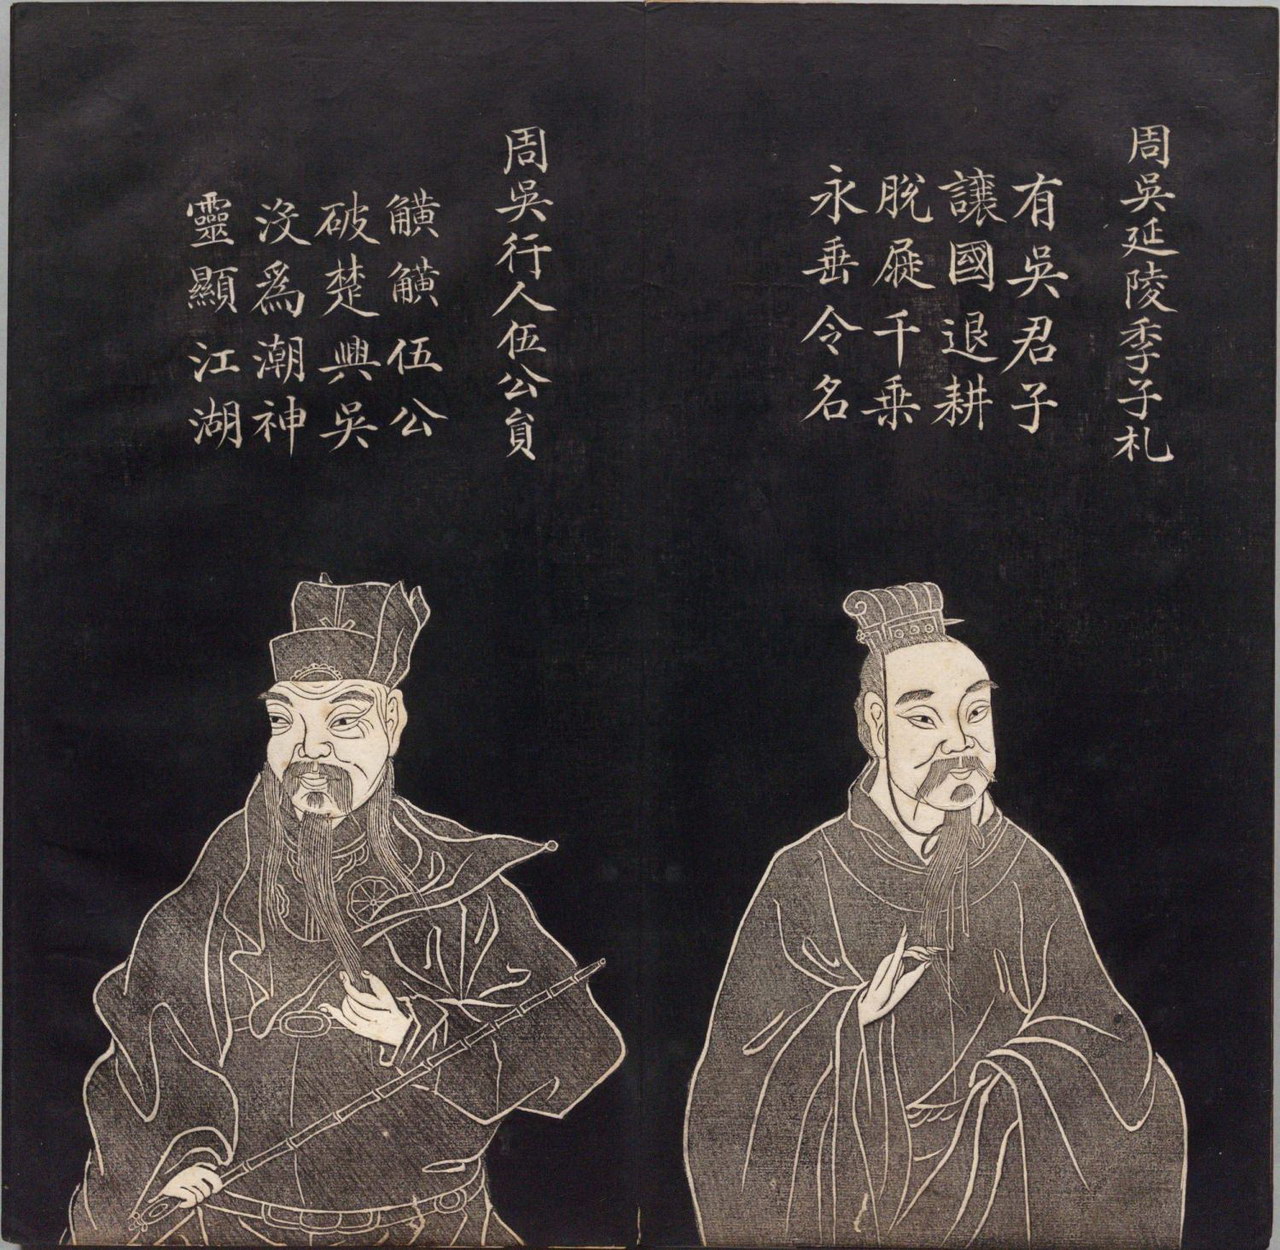 周吳延陵季子札
有吳君子
讓國退耕
脫屣千乗
永垂令名
周吳行人伍公員
觵觵伍公
破楚興吳
沒爲潮神
靈顯江湖